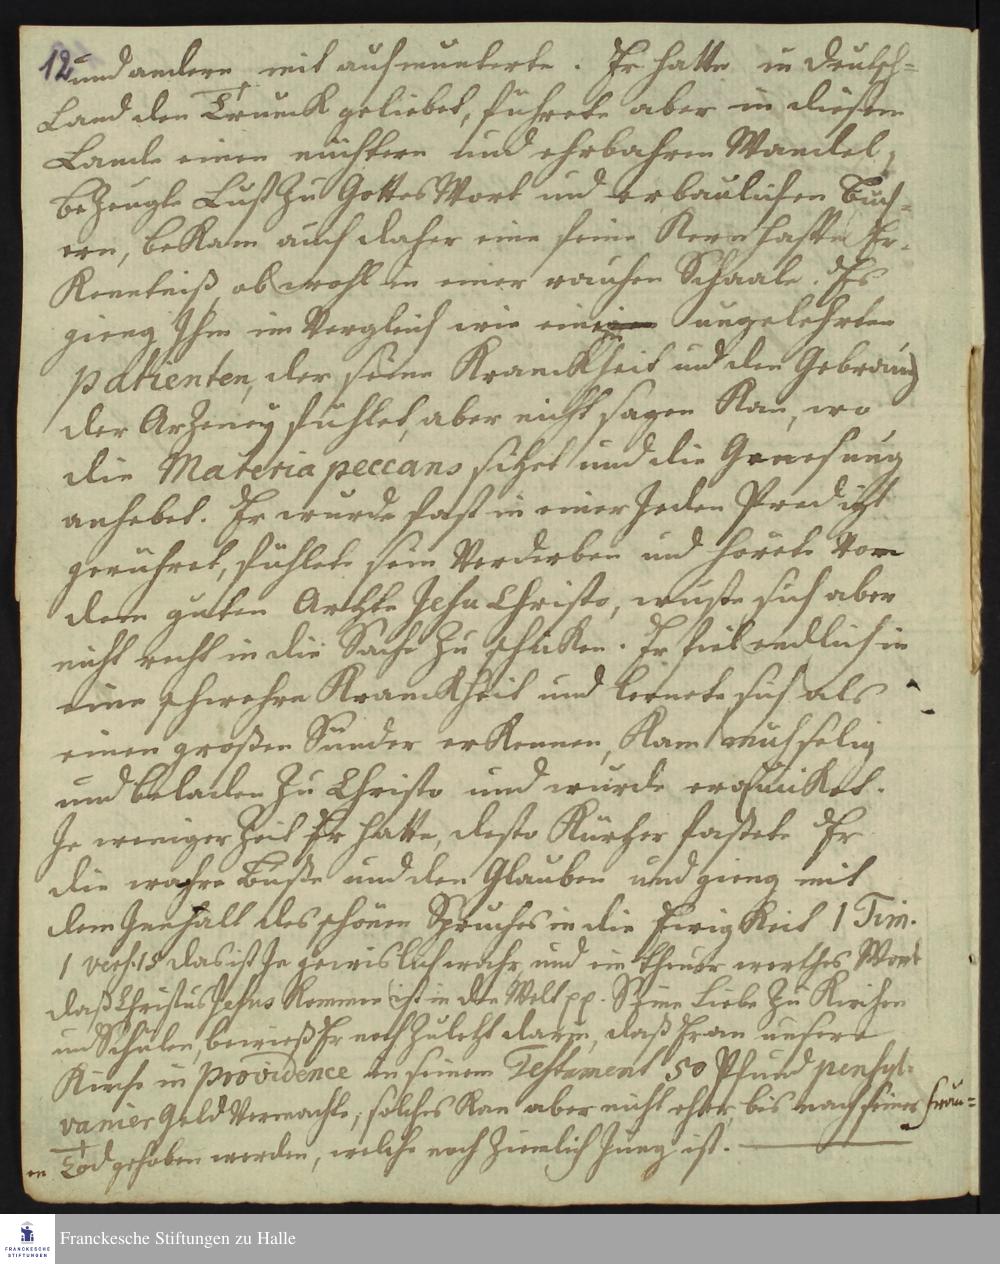 12
und andere mit aufmunterte. Er hatte in Deutsch=
Land den Trunck geliebet, führete aber in diesem
Lande einen nüchtern und ehrbahren Wandel,
bezeugte Lust zu Gottes Wort und erbaulichen Büch=
ern, bekam auch daher eine feine Kernhaffte Er=
Kenntniß, ob wohl in einer rauhen Schaale. Es
gieng Ihm im Vergleich wie einem ungelehrten
patienten, der seine Kranckheit und den Gebrauch
der Arzeney fühlet, aber nicht sagen Kan, wo
die Materia peccans sitzet und die Genesung
anhebet. Er wurde fast in einer Jeden Predigt
gerühret, fühlete sein Verderben und hörete von
dem guten Artzte Jesu Christo, wuste sich aber
nicht recht in die Sache zu schicken. Er fiel endlich in
eine schwehre Kranckheit und lernete sich als
einen großen Sünder erKennen, Kam mühselig
und beladen zu Christo und wurde erquicket.
Je weniger Zeit Er hatte, desto Kürtzer faßete Er
die wahre Buße und den Glauben und gieng mit
dem Innhalt des schönen Spruches in die Ewigkeit 1 Tim.
1 vers. 15 das ist Je gewislich wahr, und ein theuer werthes Wort
daß Christus Jesus Kommen ist in die Welt pp. Seine Liebe zu Kirchen
und Schulen, bewieß Er noch zuletzt darin, daß Er an unsere
Kirche in providence in seinem Testament 50 Pfund pensyl=
vanier Geld Vermachte, solches Kan aber nicht eher, bis nach seiner Frau=
en Tod gehoben werden, welche noch Ziemlich Jung ist.
Franckesche Stiftungen zu Halle
FRANCKESCHE
STIFTUNGEN